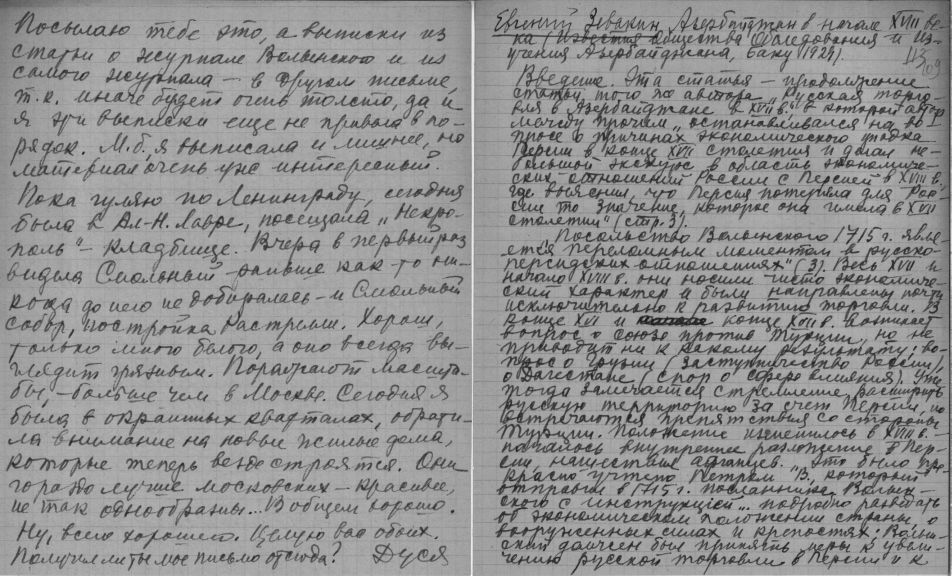 Посылаю тебе это, а выписки из
статьи о журнале Волынского и из
самого журнала – в другом письме,
т.к. иначе будет очень толсто, да и
я эти выписки еще не привела в по-
рядок. М.б, я выписала и лишнее, но
материал очень уже интересный.
Пока гуляю по Ленинграду, сегодня
была в Ал-Н. Лавре, посещала „Некро-
поль" – кладбище. Вчера в первый раз
видела Смольный – раньше как-то ни-
когда до него не добиралась – и Смольный
собор, постройка Растрелли. Хорош,
только много белого, а оно всегда вы-
глядит грязным. Поражают масшта-
бы, – больше чем в Москве. Сегодня я
была в окраинных кварталах, обрати-
ла внимание на новые жилые дома,
которые теперь везде строятся. Они
гораздо лучше московских – красивее,
не так однообразны... В общем хорошо.
Ну, всего хорошего. Целую вас обоих.
Получили ты мое письмо отсюда? Дуся
Евгений Зевакин, Азербайджан в начале XVIII ве-
ка (Известия общества Обследования и Из-
учения Азербайджана, Баку 1929).
Введение. Эта статья – продолжение
статьи того же автора „Русская торго-
вля в Азербайджане в XVII в", в которой автор
между прочим „останавливался на во-
просе о причинах экономического упадка
Персии в конце XVII столетия и делал не-
большой экскурс в область экономиче-
ских отношений России с Персией в XVIII в.
где выяснил, что Персия потеряла для Рос-
сии то значение, которое она имела в XVII
столетии" (стр. 3).
Посольство Волынского 1715 г. „явля-
ется переломным моментом в русско-
персидских отношениях" (3). Весь XVII и
начало XVIII в. они носили чисто экономиче-
ский характер и были направлены почти
исключительно к развитию торговли. В
конце XVI и конце XVII в. возникает
вопрос о союзе против Турции, но не
приводит ни к какому результату; во-
прос о Грузии (заступничество России),
о Дагестане (спор о сфере влияния).
тогда замечается стремление расширить
русскую территорию за счет Персии, но
встречаются препятствия со стороны
Турции. Положение изменилось в XVIII в. –
началось внутреннее разложение в Пер-
сии, нашествие афганцев. „Это было пре-
красно учтено Петром В., который
отправил в 1715 г. посланника Волын-
ского с инструкцией... подробно разведать
об экономическом положении страны, о
вооруженных силах и крепостях; Волын-
ский должен был принять меры к увели-
чению русской торговли в Персии и к